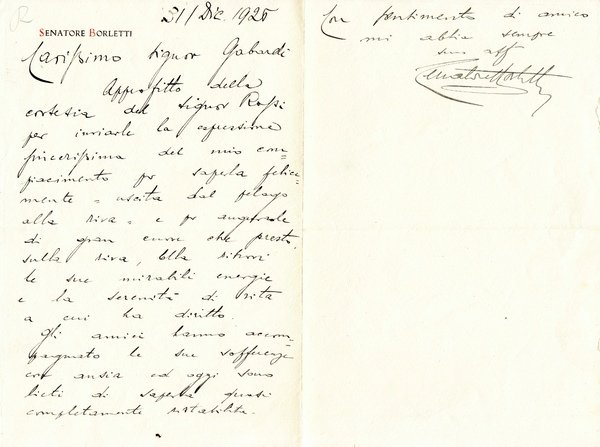 31/Dic. 1925
SENATORE BORLETTI
Carissimo Signor Gabardi
Approfitto della
cortesia del Signor Rossi
per inviarle la espressione
sincerissima del mio com-
piacimento per saperla felice-
mente "uscita dal pelago
alla riva" e per augurarle
di gran cuore che presto,
sulla riva, Ella ritrovi
le sue mirabili energie
e la serenità di vita
a cui ha diritto.
Gli amici hanno accom-
pagnato le sue sofferenze
con ansia ed oggi sono
lieti di saperla quasi
completamente ristabilita.
Con sentimento di amico
mi abbia sempre
suo aff
Senatore Borletti